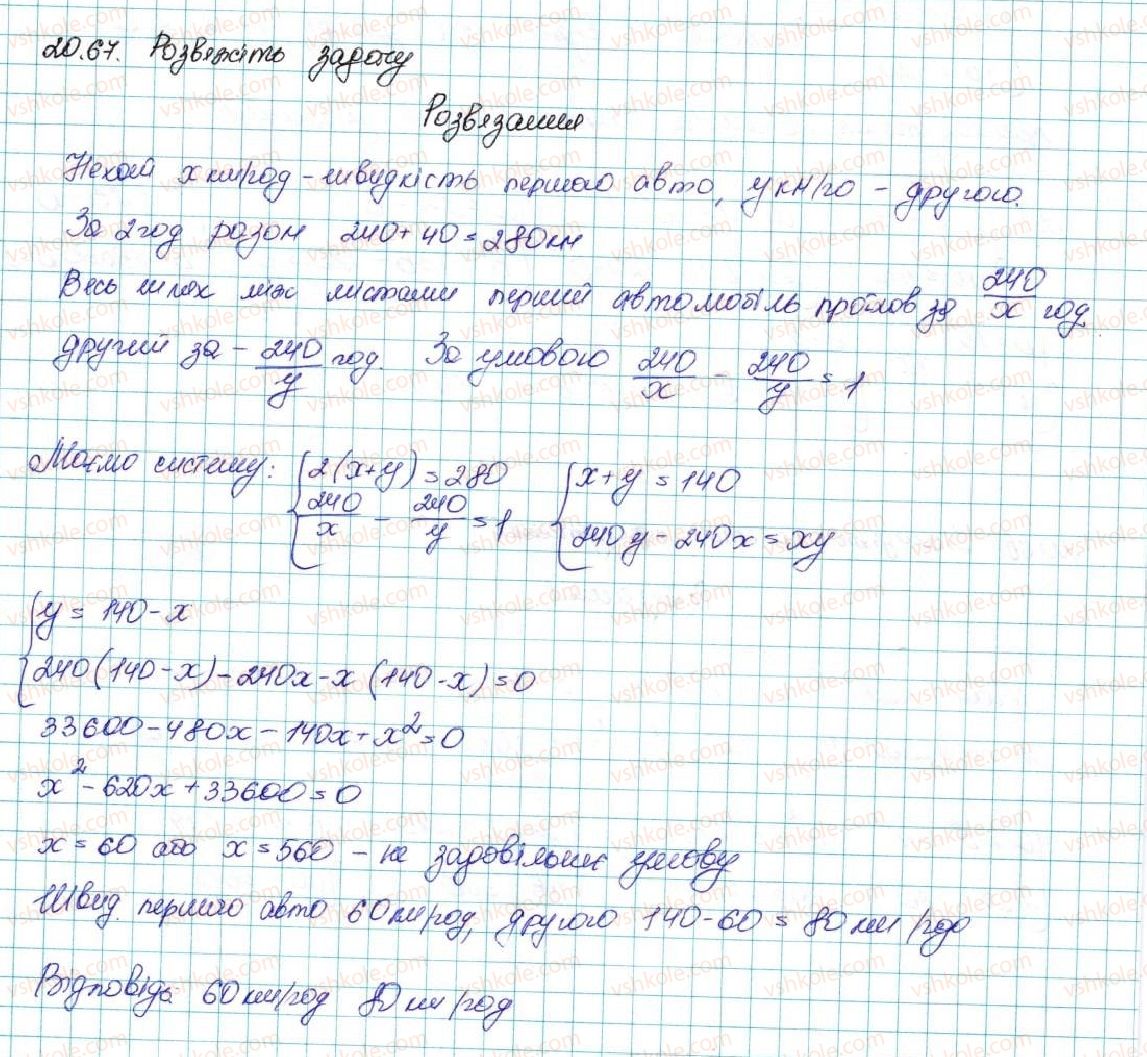 20.67. Розвяжіть задачу
Розвязання
Нехай x км/год - швидкість першого авто, y км/го - другого.
За 2 год разом 240 + 40 = 280 км
Весь шлях між містами перший автомобіль проїхав за 240/x год,
другий за - 240/y год. За умовою 240/x - 240/y = 1
Маємо систему: { 2(x+y) = 280 { x+y = 140
240/x - 240/y = 1 240y - 240x = xy
{ y = 140 - x
240(140-x) - 240x - x(140-x) = 0
33600 - 480x - 140x + x² = 0
x² - 620x + 33600 = 0
x = 60 або x = 560 - не задовільнює умову
Швид. першого авто 60 км/год, другого 140 - 60 = 80 км/год
Відповідь 60 км/год 80 км/год
vshkole.com